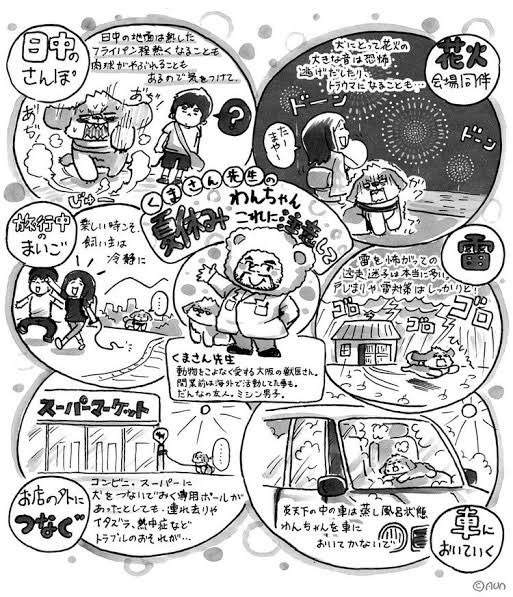 日中の
さんぽ
日中の地面は熱した
フライパン程熱くなることも
肉球がやぶれることも
あるので気をつけて。
あぢぃ
あぢっ!
?
じゅー
花火
会場同伴
犬にとって花火の
大きな音は恐怖
逃げだしたり、
トラウマになることも…
ドーン
ドーン
たーまやー!
ブルブル
くまさん先生の
わんちゃん
夏休み
これに注意して
旅行中の
まいご
楽しい時こそ、
飼い主は
冷静に
雷
雷を怖がっての
逃走、迷子は本当に多い
戸じまりや雷対策はしっかりと!
ゴロゴロ
ゴロゴロ
くまさん先生
動物をこよなく愛する大阪の獣医さん。
開業前は海外で活動してた事も。
だんなの友人。ミシン男子。
スーパーマーケット
お店の外に
つなぐ
コンビニ・スーパーに
犬をつないでおく専用ポールが
あったとしても、連れ去りや
イタズラ、熱中症など
トラブルのおそれが…
炎天下の中の車は蒸し風呂状態
わんちゃんを車に
おいてかないで
車に
おいていく